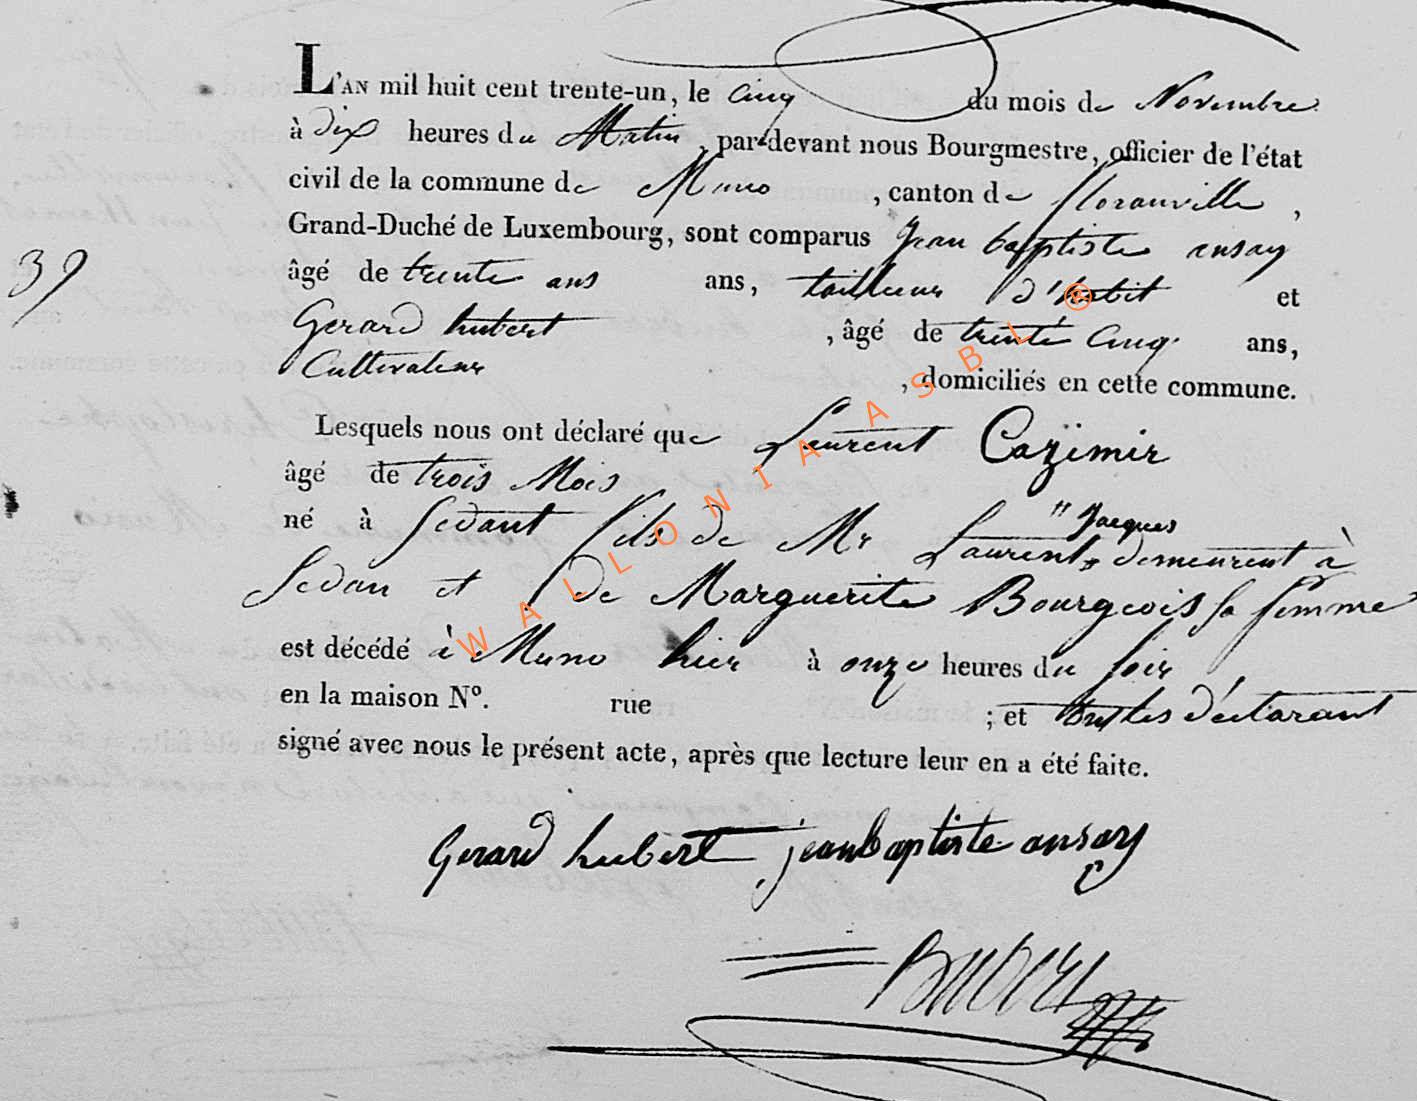 L'AN mil huit cent trente-un, le cinq du mois de Novembre
à dix heures du Matin, par-devant nous Bourgmestre, officier de l'état
civil de la commune de Muno, canton de florauville,
Grand-Duché de Luxembourg, sont comparus Jean baptiste ansay
39
âgé de trente ans ans, tailleur d'habit et
Gerard hubert, âgé de trente Cinq ans,
Cultivateur, domiciliés en cette commune.
Lesquels nous ont déclaré que Laurent Cazimir
âgé de trois Mois
né à Sedant fils de Mr Laurent " Jacques demeurent à
Sedan et de Marguerite Bourgeois sa femme
est décédé à Muno hier à onze heures du soir
en la maison N°. rue ; et les déclarant
signé avec nous le présent acte, après que lecture leur en a été faite.
Gerard hubert jeanbaptiste ansay
WALLONIA ASBL ®